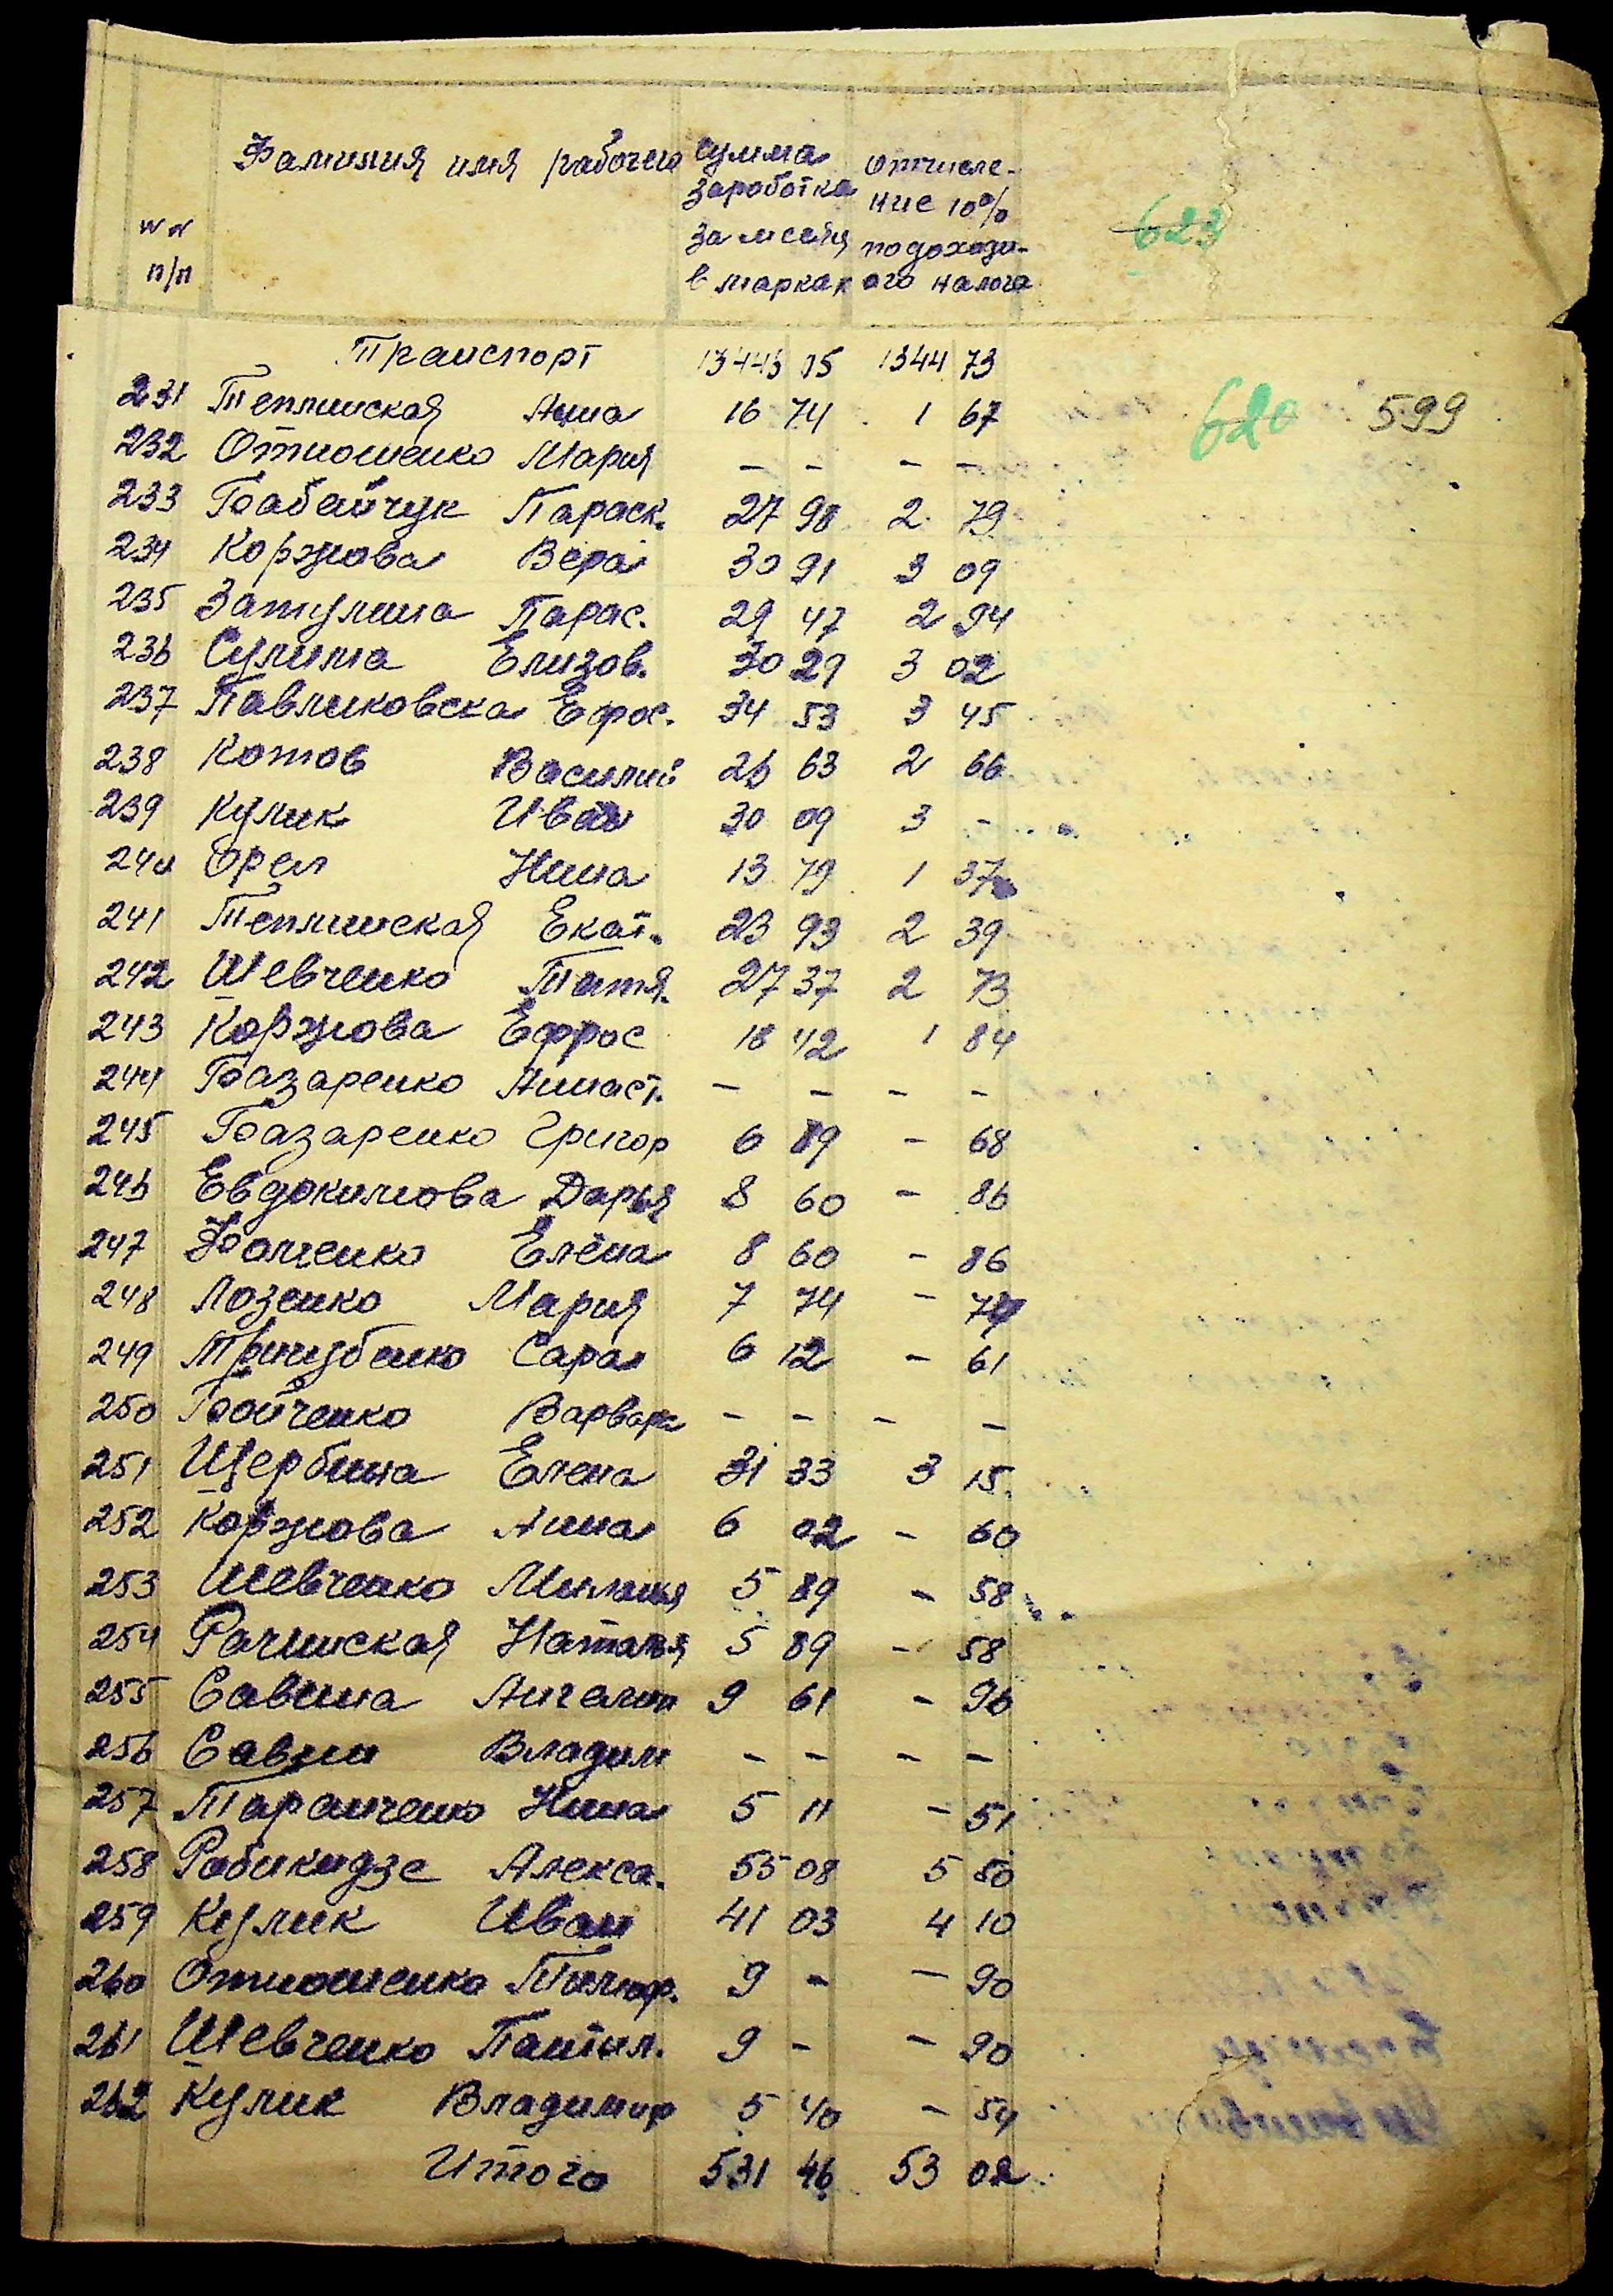 №№ п/п
Фамилия имя рабочего
сумма заработка за месяц в марках
отчисление 10% подоходного налога
623
Транспорт 13443 05 1344 73
620 599
231 Теплинская Анна 16 74 1 67
232 Отношенко Мария – – – –
233 Бабейчук Параск. 27 98 2 79
234 Коржова Вера 30 91 3 09
235 Затулина Парас. 29 47 2 94
236 Сулима Елизов. 30 29 3 02
237 Павликовска Ефрос. 34 53 3 45
238 Котов Василий 26 63 2 66
239 Кулик Иван 30 09 3 –
240 Орел Нина 13 79 1 37
241 Теплинская Екат. 23 93 2 39
242 Шевченко Татя. 27 37 2 73
243 Коржова Ефрос 18 42 1 84
244 Базаренко Анаст. – – – –
245 Базаренко Григор 6 89 – 68
246 Евдокимова Дарья 8 60 – 86
247 Фоменко Елена 8 60 – 86
248 Лозенко Мария 7 74 – 74
249 Сара 6 12 – 61
250 Бойченко Варвара – – – –
251 Щербина Елена 31 33 3 15
252 Коржова Анна 6 02 – 60
253 Шевченко Миланья 5 89 – 58
254 Рачинская Наталья 5 89 – 58
255 Савина Ангелин 9 61 – 96
256 Савин Владим – – – –
257 Таранченко Нина 5 11 – 51
258 Рабикидзе Алекса. 55 08 5 50
259 Кулик Иван 41 03 4 10
260 Отношенко 9 – – 90
261 Шевченко Пантил. 9 – – 90
262 Кулик Владимир 5 40 – 54
Итого 531 46 53 02